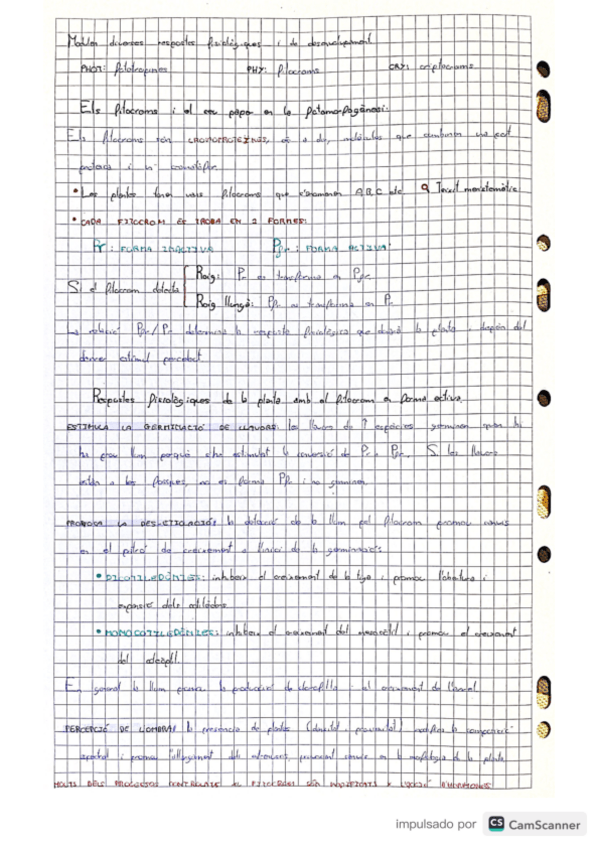 Modulen diverses respostes fisiològiques i de desenvolupament
PHOT: fototropines PHY: fitocroms CRY: criptocroms
Els fitocroms i el seu paper en la fotomorfogènesi:
Els fitocroms són CROMOPROTEÏNES, és a dir, molècules que combinen una part
proteica i un cromòfor.
• Les plantes tenen varis fitocroms que s'anomenen A, B, C etc. Teixit meristemàtic
• CADA FITOCROM ES TROBA EN 2 FORMES:
Pr: FORMA INACTIVA Pfr: FORMA ACTIVA
Si el fitocrom detecta
Roig: Pr es transforma en Pfr
Roig llunyà: Pfr es transforma en Pr
La relació Pfr/Pr determina la resposta fisiològica que durà la planta i depèn del
darrer estímul percebut.
Respostes fisiològiques de la planta amb el fitocrom en forma activa.
ESTIMULA LA GERMINACIÓ DE LLAVORS: les llavors de espècies germinen quan hi
ha prou llum perquè s'ha estimulat la conversió de Pr a Pfr. Si les llavors
estan a les fosques, no es forma Pfr i no germinen.
PROMOU LA DES-ETIOLACIÓ: la detecció de la llum pel fitocrom promou canvis
en el patró de creixement a l'inici de la germinació:
• DICOTILEDÒNIES: inhibeix el creixement de la tija i promou l'obertura i
expansió dels cotilèdons
• MONOCOTILEDÒNIES: inhibeix el creixement del mesocòtil i promou el creixement
del coleòptil.
En general la llum promou la producció de clorofil·la i el creixement de l'arrel
PERCEPCIÓ DE L'OMBRA: la presència de plantes (densitat, proximitat) modifica la composició
espectral i promou l'allargament dels entrenusos, provocant canvis en la morfologia de la planta
MOLTS DELS PROCESSOS CONTROLATS PEL FITOCROM SÓN HORMONES
impulsado por CS CamScanner